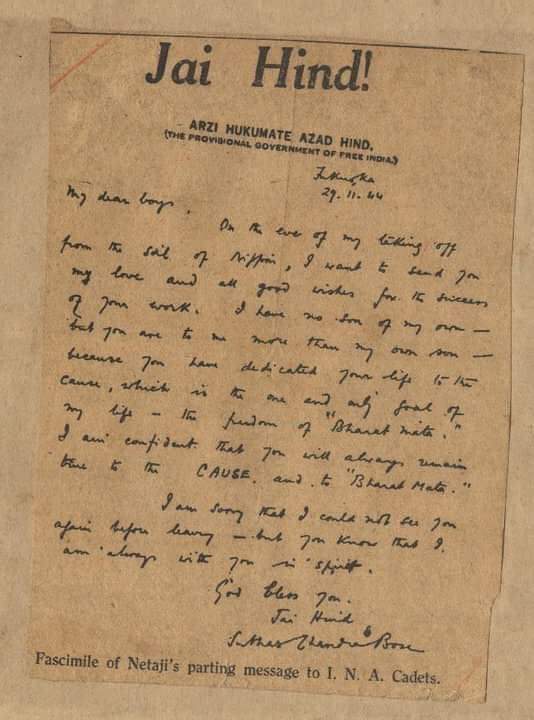 Jai Hind!
ARZI HUKUMATE AZAD HIND.
(THE PROVISIONAL GOVERNMENT OF FREE INDIA.)
Fukuoka
29.11.44
My dear boys,
On the eve of my taking off
from the soil of Nippon, I want to send you
my love and all good wishes for the success
of your work. I have no son of my own —
but you are to me more than my own son —
because you have dedicated your life to the
cause, which is the one and only goal of
my life — the freedom of "Bharat Mata."
I am confident that you will always remain
true to the CAUSE. and to "Bharat Mata."
I am sorry that I could not see you
again before leaving — but you know that I
am always with you in spirit.
God bless you.
Jai Hind
Subhas Chandra Bose
Fascimile of Netaji's parting message to I. N. A. Cadets.